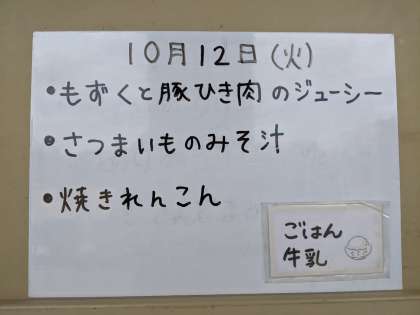 10月12日(火)
•もずくと豚ひき肉のジューシー
•さつまいものみそ汁
•焼きれんこん
ごはん
牛乳